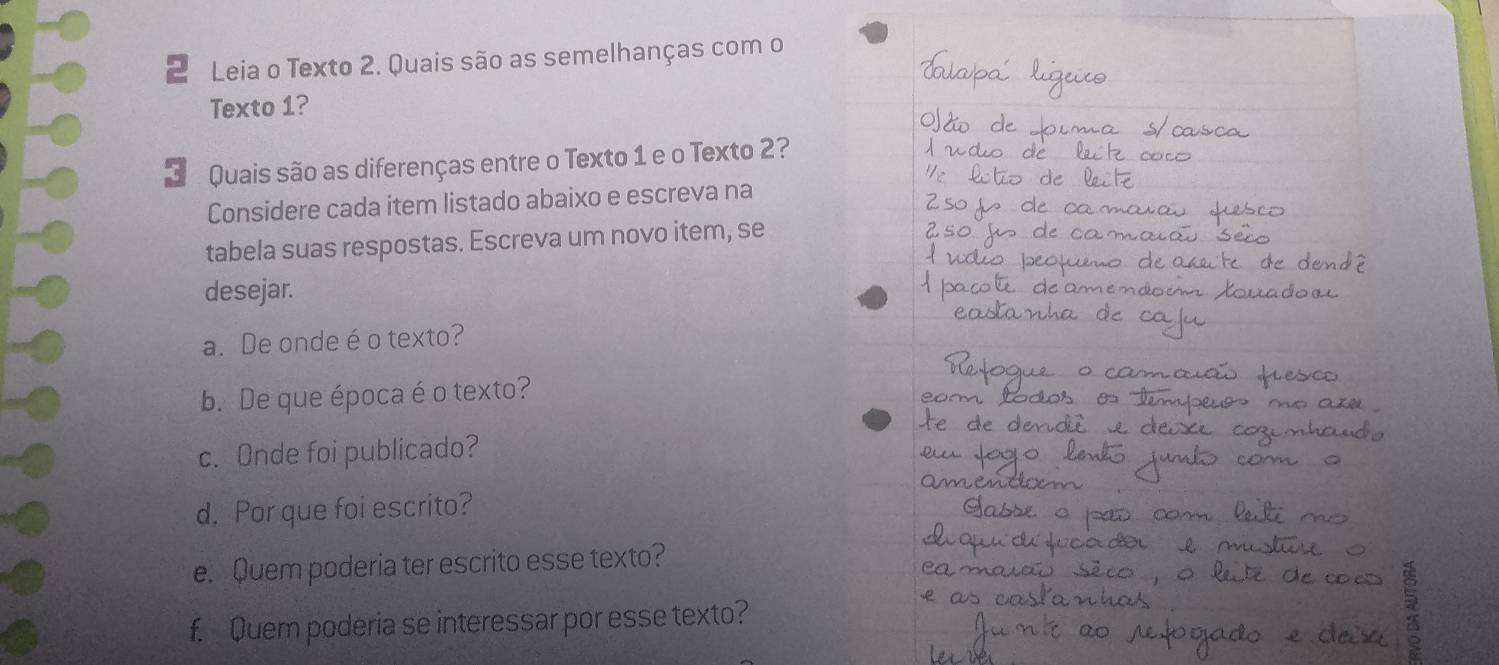 2 Leia o Texto 2. Quais são as semelhanças com o
Texto 1?
3 Quais são as diferenças entre o Texto 1 e o Texto 2?
Considere cada item listado abaixo e escreva na
tabela suas respostas. Escreva um novo item, se
desejar.
a. De onde é o texto?
b. De que época é o texto?
c. Onde foi publicado?
d. Por que foi escrito?
e. Quem poderia ter escrito esse texto?
f. Quem poderia se interessar por esse texto?
ligeiro
de forma s/casca
1 vidro de leite coco
1/2 litro de leite
250 grs de camarão fresco
250 grs de camarão sêco
1 vidro pequeno de azeite de dendê
1 pacote de amendoim torrado ou
castanha de caju
Refogue o camarão fresco
com todos os temperos no azei
te de dendê e deixe cozinhando
em fogo lento junto com o
amendoim
Passe o pão com leite no
liquidificador e misture o
camarão sêco, o leite de coco
e as castanhas
Junte ao refogado e deixe
ferver
RVO DA AUTORA